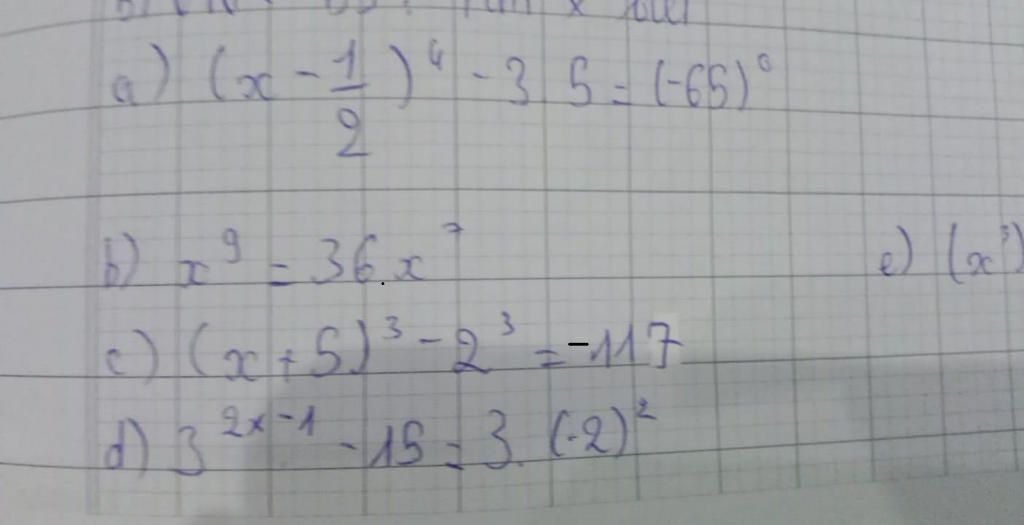 a) (x - 1/2)⁴ - 3 5 = (-65)⁰
b) x⁹ = 36.x⁷
e) (x³)
c) (x + 5)³ - 2³ = -117
d) 3²ˣ⁻¹ - 15 = 3.(-2)²